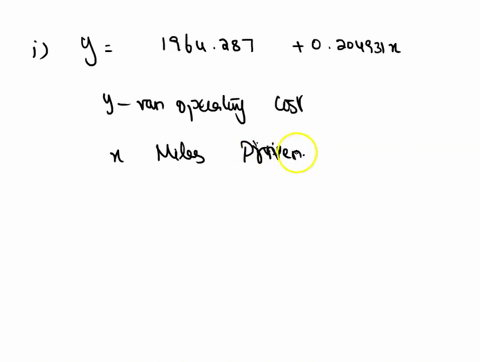 i) y = 1964.287 + 0.204931x
y - van operating cost
x Miles Driven.